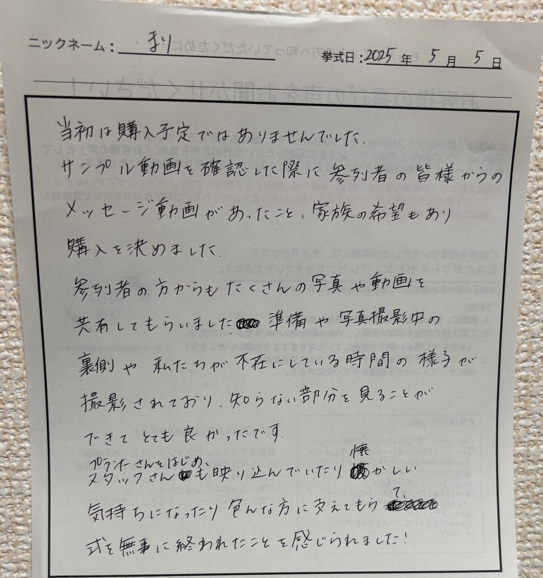 ニックネーム: まり 挙式日: 2025 年 5 月 5 日
当初は購入予定ではありませんでした。
サンプル動画を確認した際に参列者の皆様からの
メッセージ動画があったこと、家族の希望もあり
購入を決めました。
参列者の方からもたくさんの写真や動画を
共有してもらいました 準備や写真撮影中の
裏側や私たちが不在にしている時間の様子が
撮影されており、知らない部分を見ることが
できてとても良かったです。
プランナーさんをはじめ、
スタッフさんも映り込んでいたり懐かしい
気持ちになったり色んな方に支えてもらって、
式を無事に終われたことを感じられました!